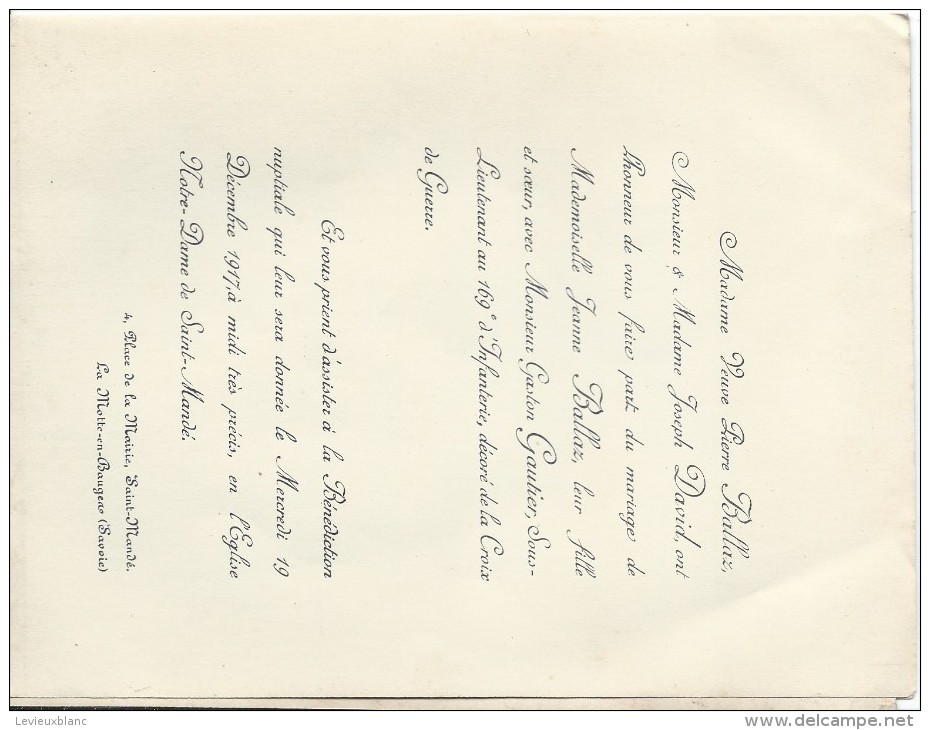 Madame Veuve Pierre Ballaz,
Monsieur & Madame Joseph David, ont
l'honneur de vous faire part du mariage de
Mademoiselle Jeanne Ballaz, leur fille
et sœur, avec Monsieur Gaston Gautier, Sous-
Lieutenant au 169e d'Infanterie, décoré de la Croix
de Guerre.
Et vous prient d'assister à la Bénédiction
nuptiale qui leur sera donnée le Mercredi 19
Décembre 1917, à midi très précis, en l'Eglise
Notre-Dame de Saint-Mandé.
4, Place de la Mairie, Saint-Mandé.
La Motte-en-Bauges (Savoie)
Levieuxblanc
delcampe.net